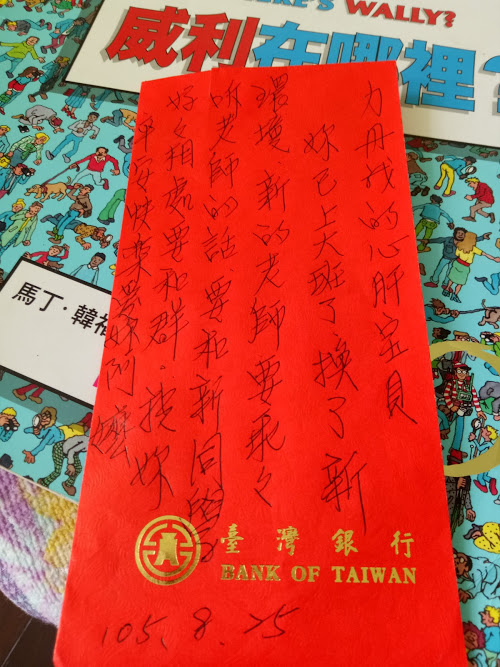 ERE'S WALLY?
威利在哪裡?
馬丁·韓
力丹我的心肝宝貝
妳已上大班了換了新
環境 新的老師要乖々
听老師的話、要和新同學
好々相處要和群。祝妳
平安快樂愛妳阿嬤
臺灣銀行
BANK OF TAIWAN
105.8.25